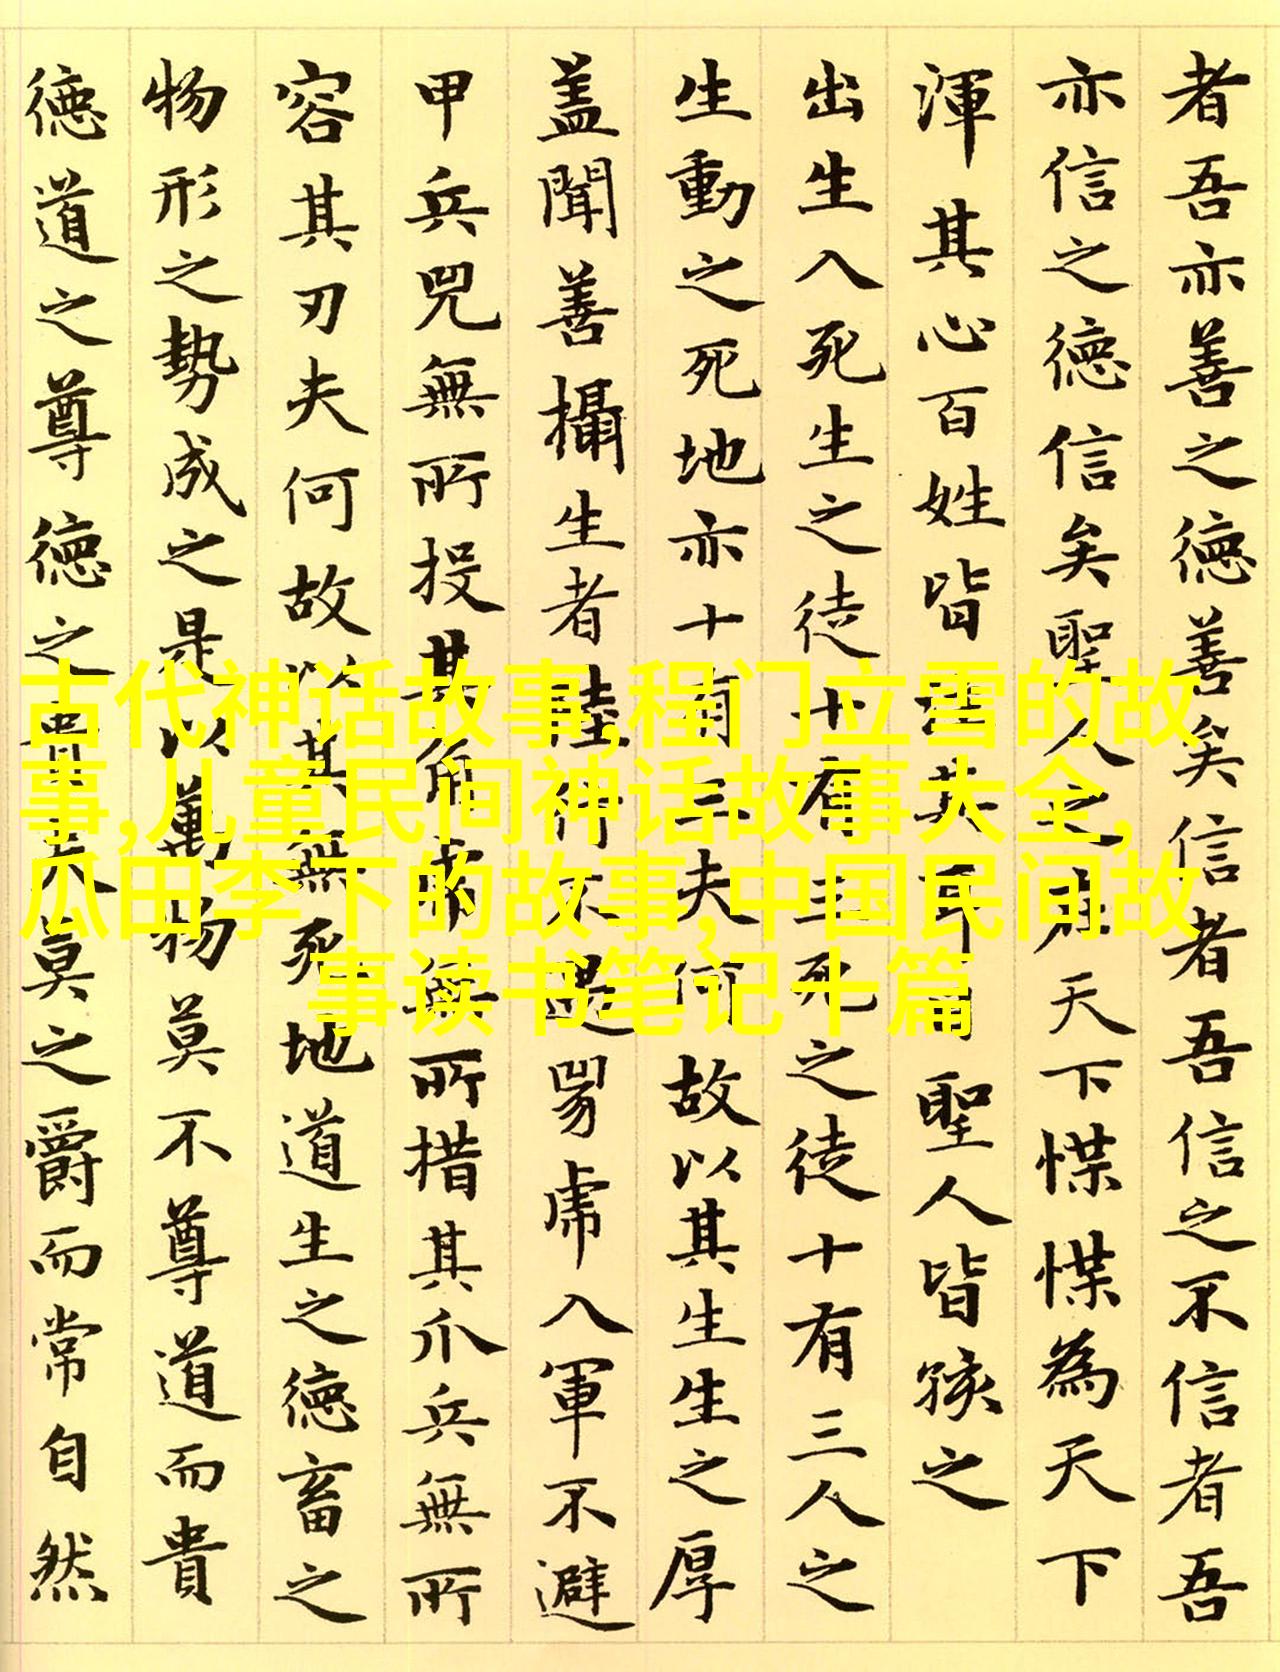 者吾亦善之德善矣信者吾信之不信者吾
亦信之德信矣聖人之在天下惵惵為天下
渾其心百姓皆注其耳目聖人皆孩之
出生入死生之徒十有三死之徒十有三人之
生動之死地亦十有三夫何故以其生生之厚
蓋聞善攝生者陸行不遇兕虎入軍不避
甲兵兕無所投其角虎無所措其爪兵無所
容其刃夫何故以其無死地道生之德畜之
物形之勢成之是以萬物莫不尊道而貴
德道之尊德之貴夫莫之爵而常自然
古代神话故事,程门立雪的故
事,儿童民间神话故事大全,
瓜田李下的故事,中国民间故
事读书笔记十篇